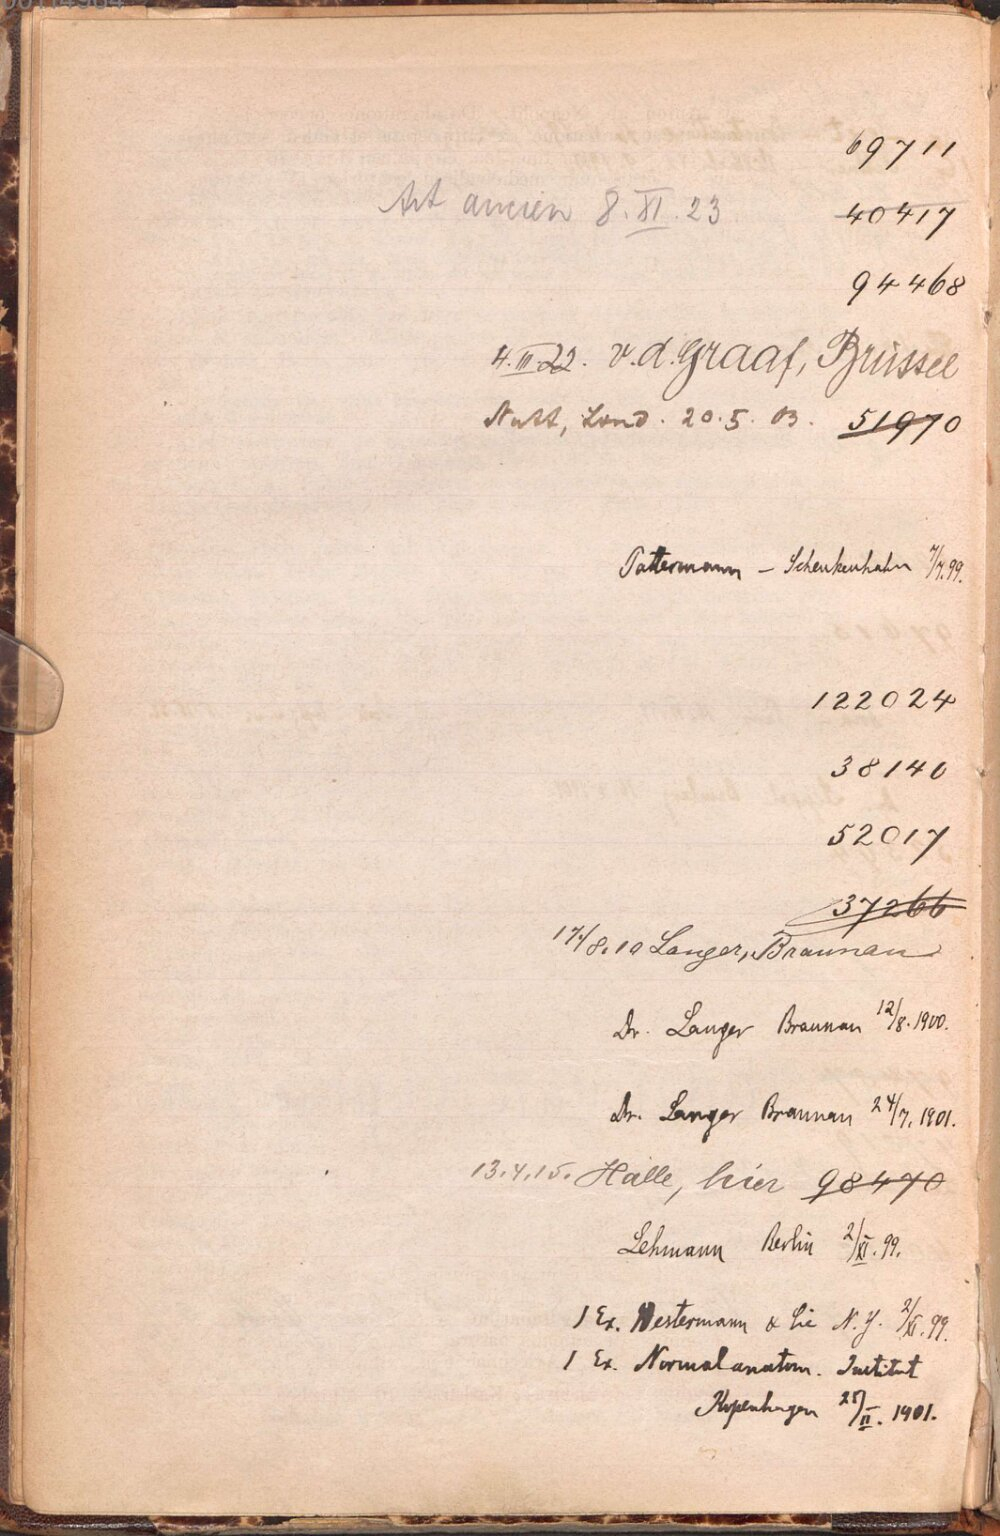 69711
Art ancien 8.XI.23 40417
94468
4.III.22. v.d.Graaf, Brüssel
Nutt, Lond. 20.5.03. 51970
Tattermann – Schenkenhahn 7/7.99.
122024
38140
52017
37266
17./8.10 Langer, Braunau
Dr. Langer Braunau 12/8.1900.
Dr. Langer Braunau 24/7.1901.
13.4.15. Halle, hier 98470
Lehmann Berlin 2/XI.99.
1 Ex. Westermann & Cie N.Y. 2/XI.99.
1 Ex. Normalanatom. Institut
Kopenhagen 25/II.1901.